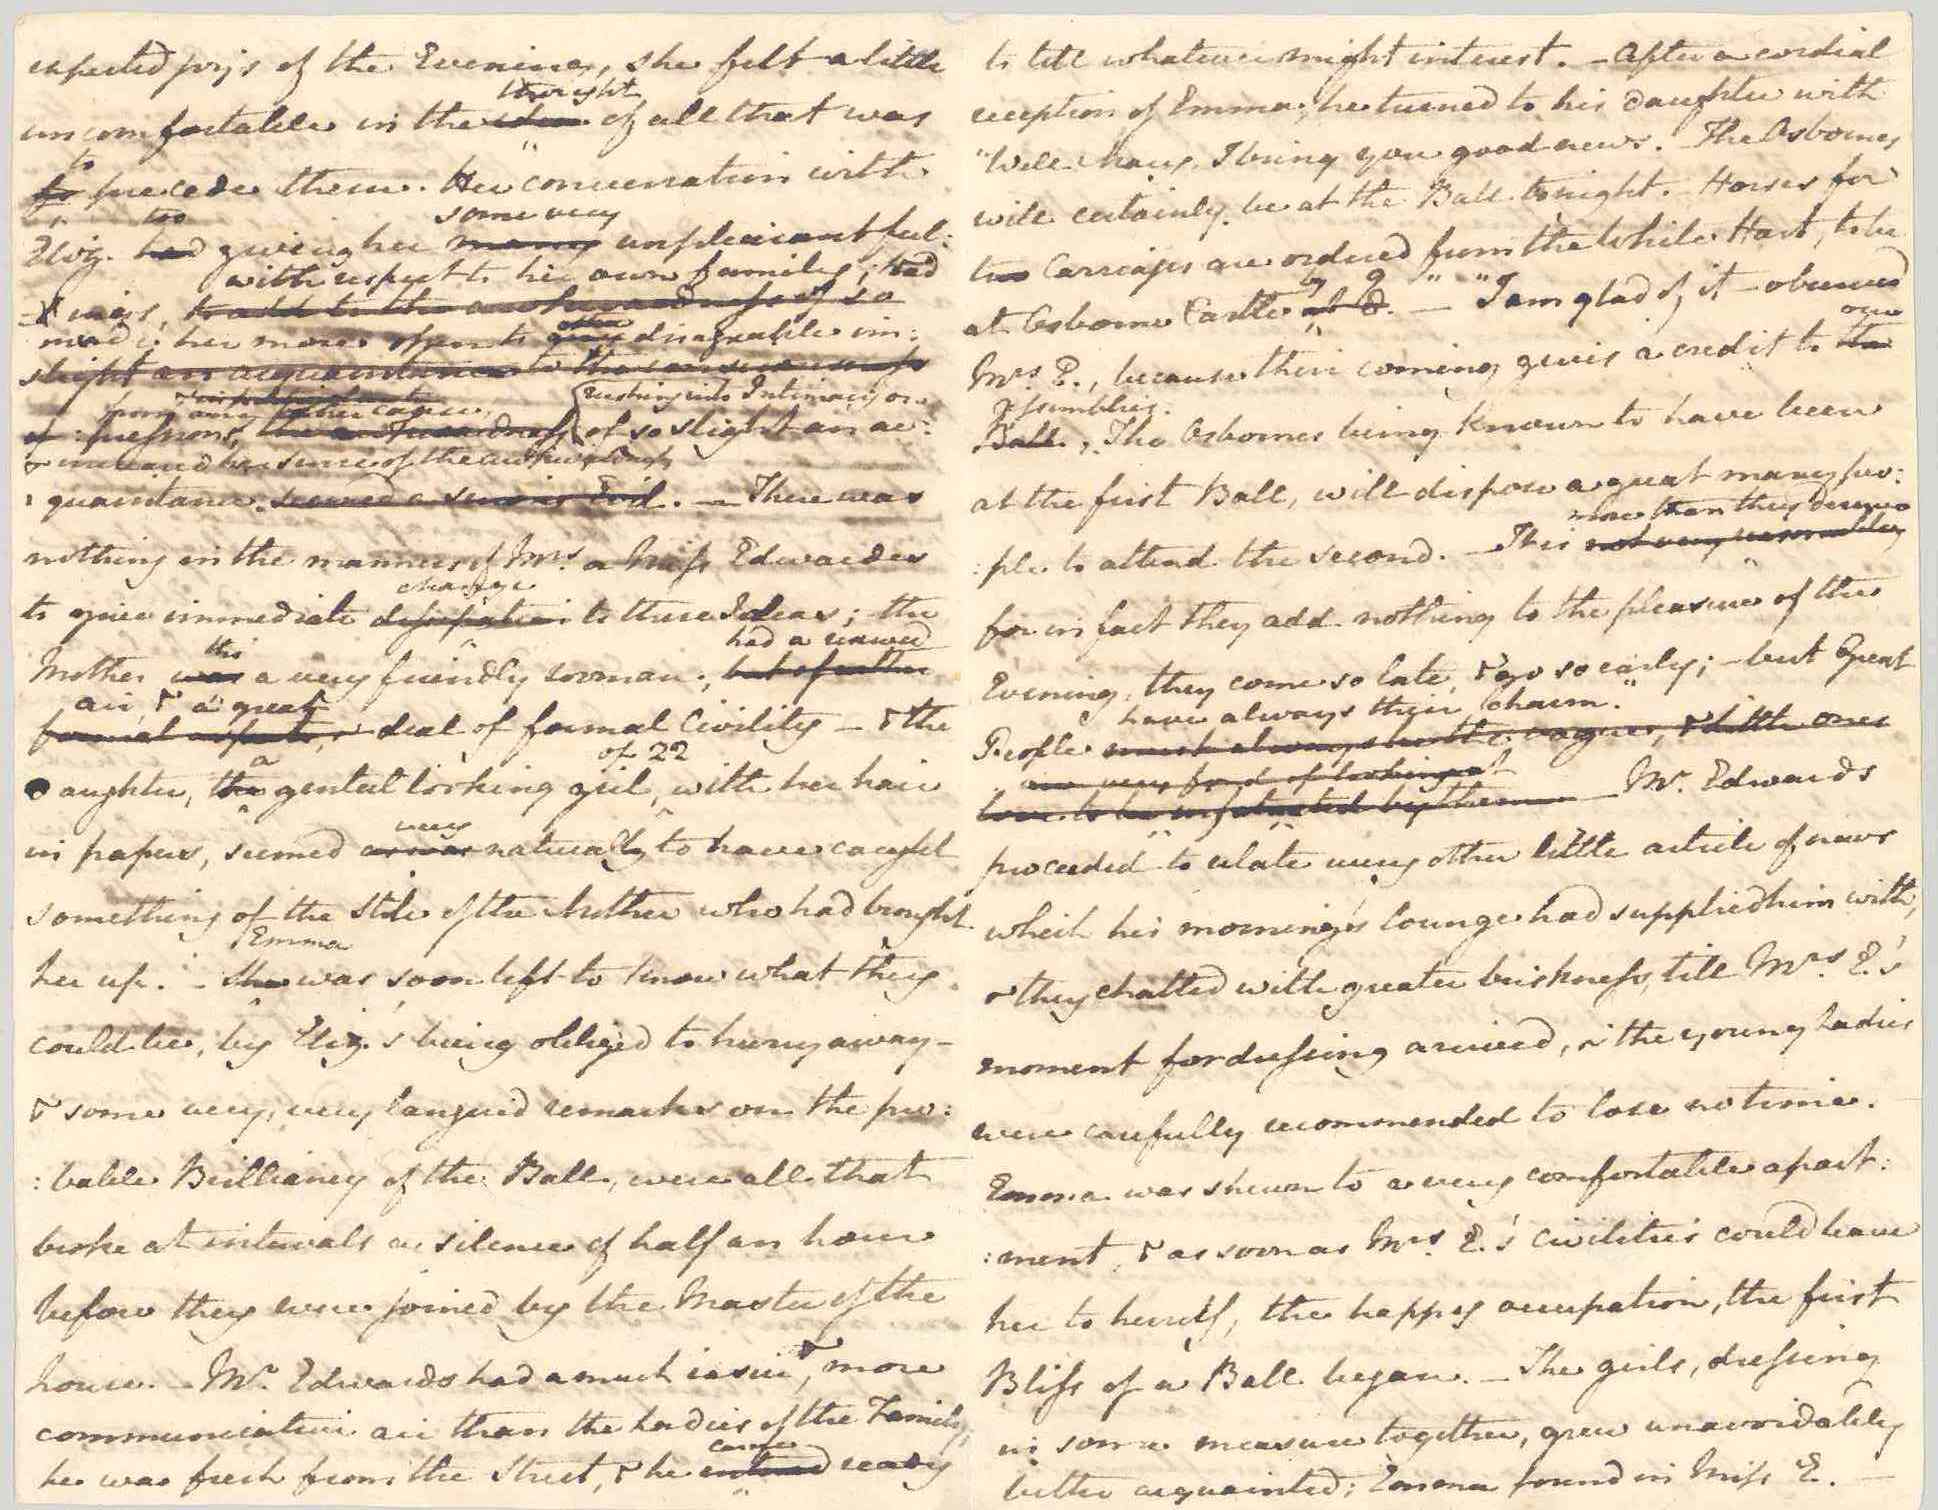 expected joys of the Evening, she felt a little
thought
uncomfortable in the idea of all that was
to
for precede them. Her conversation with
too some very
Eliz. had giving her many unpleasant feel:
with respect to her own family, had
:ings, to add to the awkwardness of so
made her more open to other any disagreable im:
slight an acquaintance
from any other cause, rushing into Intimacy on
:pressions, the awkwardness of so slight an ac:
& increased her sense of the awkwardness
:quaintance. seemed a serious Evil. — There was
nothing in the manners of Mrs. or Miss Edwardes
change
to give immediate dissipation to these Ideas; the
tho' had a reserved
Mother was a very friendly woman, but of rather
air, & a great
formal aspect, & deal of formal Civility — & the
a of 22
daughter, the genteel looking girl, with her hair
very
in papers, seemed as was naturally to have caught
something of the stile of the Mother who had brought
Emma
her up. — She was soon left to know what they
could be, by Eliz.'s being obliged to hurry away —
& some very, very languid remarks on the pro:
:bable Brilliancy of the Ball, were all that
broke at intervals a silence of half an hour
before they were joined by the Master of the
&
house. — Mr. Edwards had a much easier, more
communicative air than the Ladies of the Family;
came
he was fresh from the Street, & he entered ready
to tell whatever might interest. — After a cordial
reception of Emma, he turned to his daughter with
"Well Mary, I bring you good news. — The Osbornes
will certainly be at the Ball tonight. — Horses for
two Carriages are ordered from the White Hart, to be
by 9
at Osborne Castle at 8. — " "I am glad of it — observed
our
Mrs. E., because their coming gives a credit to the
assemblies.
Ball. The Osbornes being known to have been
at the first Ball, will dispose a great many peo:
more than they deserve
:ple to attend the second. — This is not very reasonable,
for in fact they add nothing to the pleasure of the
Evening, they come so late, & go so early; — but Great
have always their charm."
People must always be the vogue, & little ones
are very fond of looking at
love to be infatuated by them — Mr. Edwards
proceeded to relate every other little article of news
which his morning's lounge had supplied him with,
& they chatted with greater briskness, till Mrs. E.'s
moment for dressing arrived, & the young Ladies
were carefully recommended to lose no time. —
Emma was shewn to a very comfortable apart:
:ment, & as soon as Mrs. E.'s civilities could leave
her to herself, the happy occupation, the first
Bliss of a Ball began. — The girls, dressing
in some measure together, grew unavoidably
better acquainted; Emma found in Miss E. —